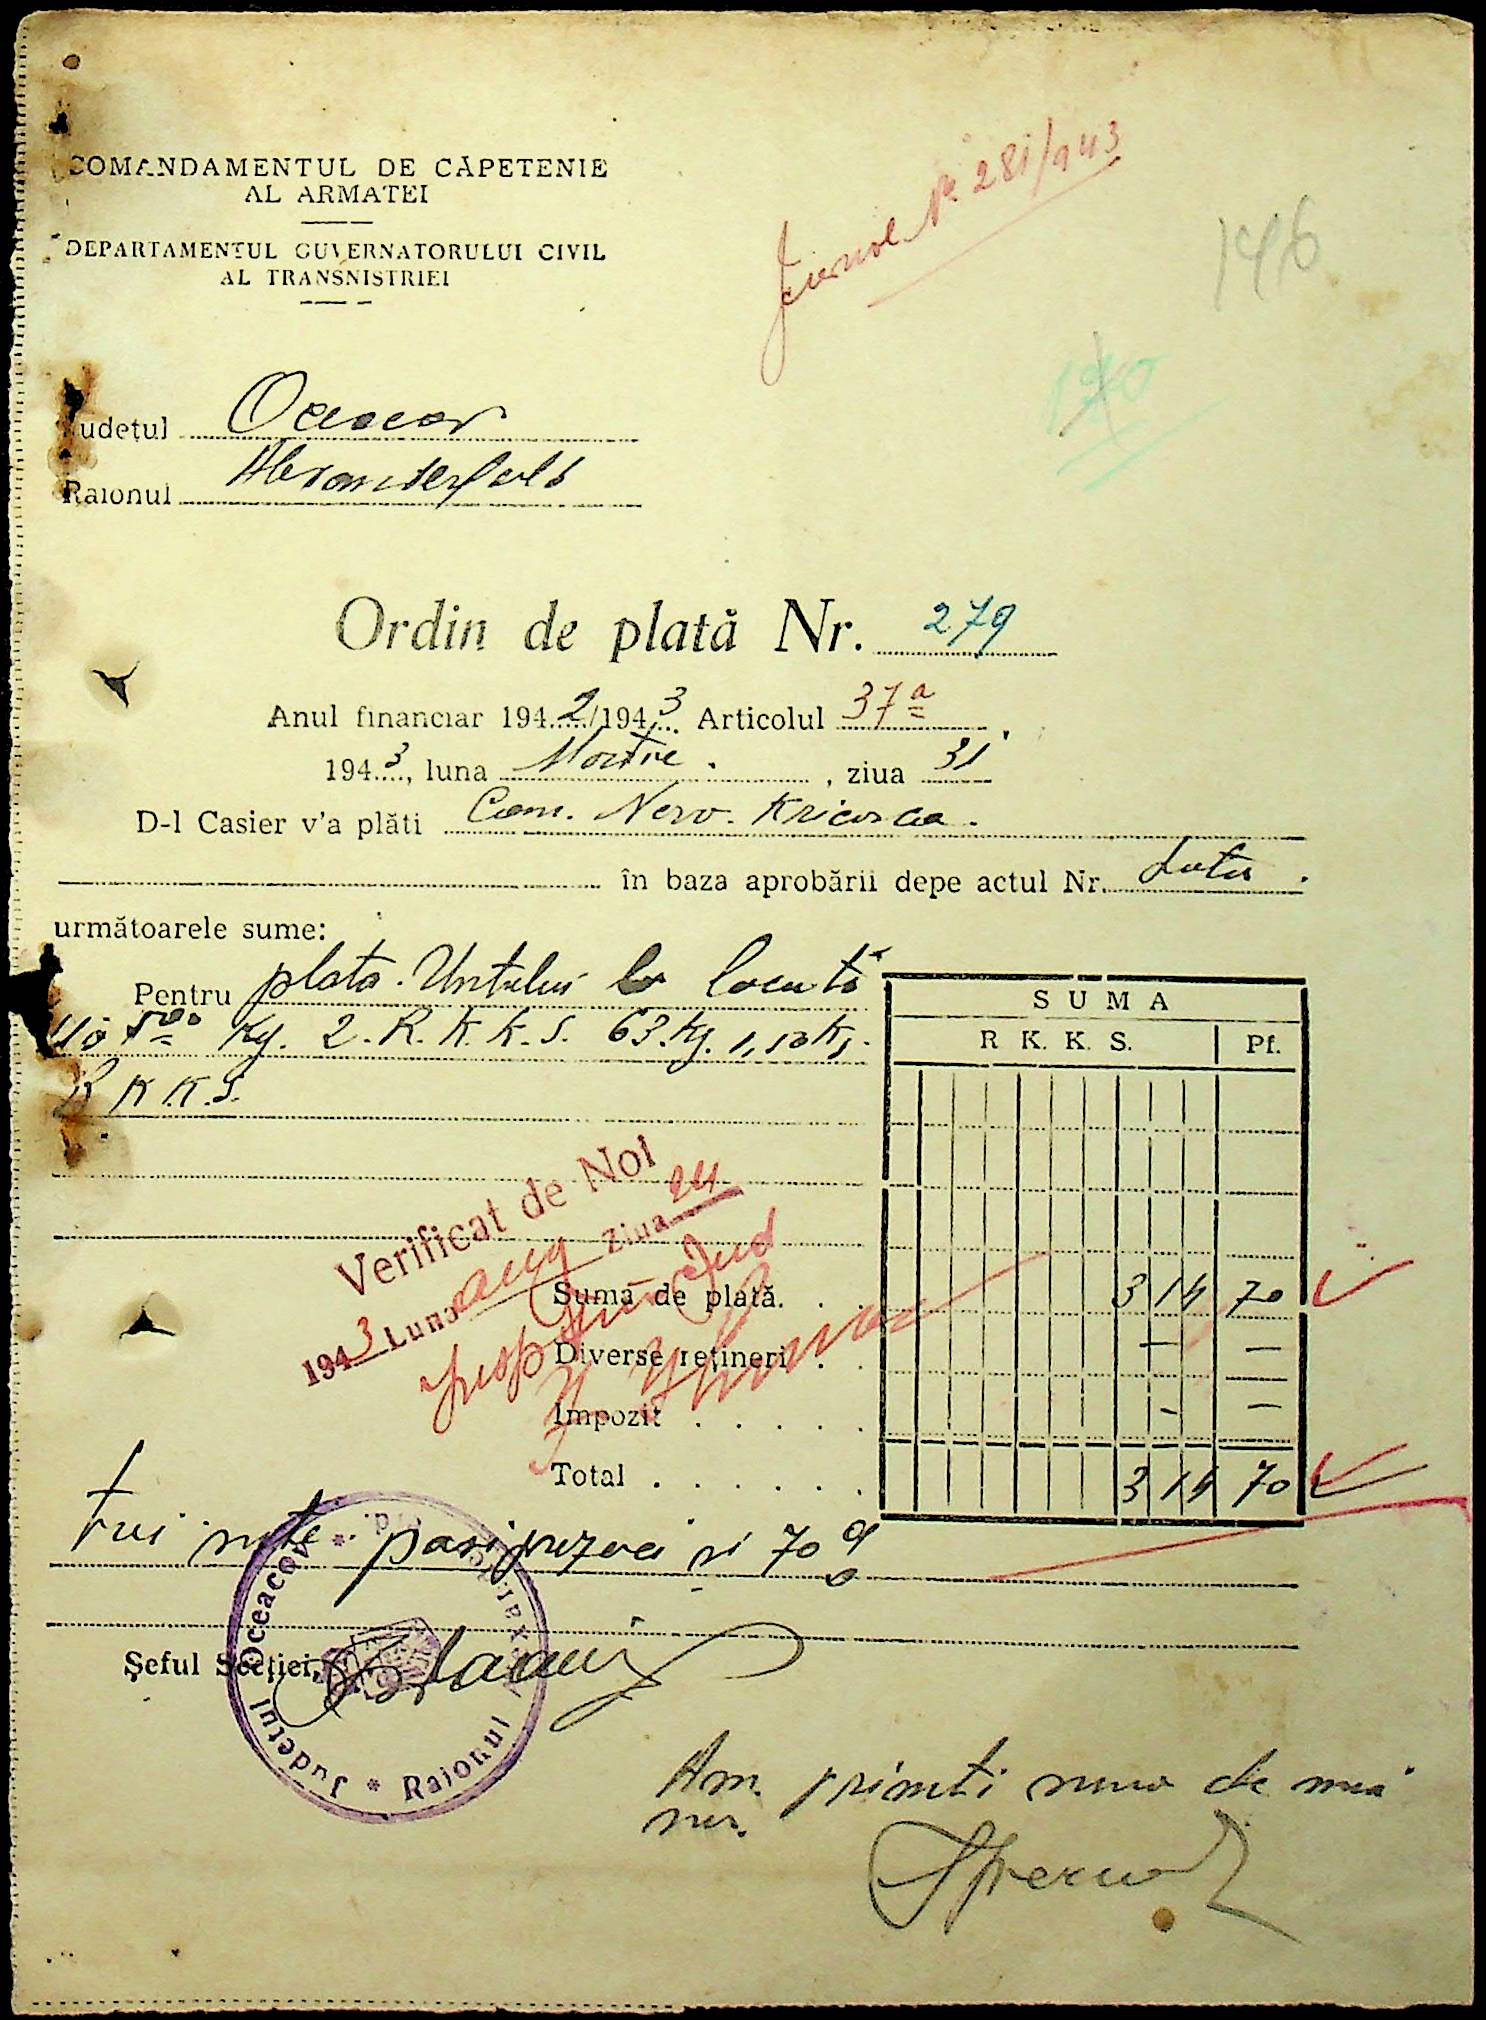 COMANDAMENTUL DE CĂPETENIE
AL ARMATEI
DEPARTAMENTUL GUVERNATORULUI CIVIL
AL TRANSNISTRIEI
Jurnal Nr. 281/943
146
Județul
Raionul Alexanderfeld
Ordin de plată Nr. 279
Anul financiar 1942/1943 Articolul 37a
1943, luna Martie, ziua 31
D-l Casier v'a plăti Com.
în baza aprobării depe actul Nr.
următoarele sume:
Pentru plata Untului
Kg. 2. R.K.K.S. 63 Kg. 1,10
R K.K.S.
SUMA
R K. K. S. Pf.
Verificat de Noi
1943 Luna aug Ziua 24
Suma de plată. . . 314 70
Diverse rețineri . . — —
Impozit . . . . . . - —
Total . . . . . . . 314 70
Trei sute și 70
Șeful Secției,
Județul Oceacov * Raionul
Am primit suma de mai
sus.